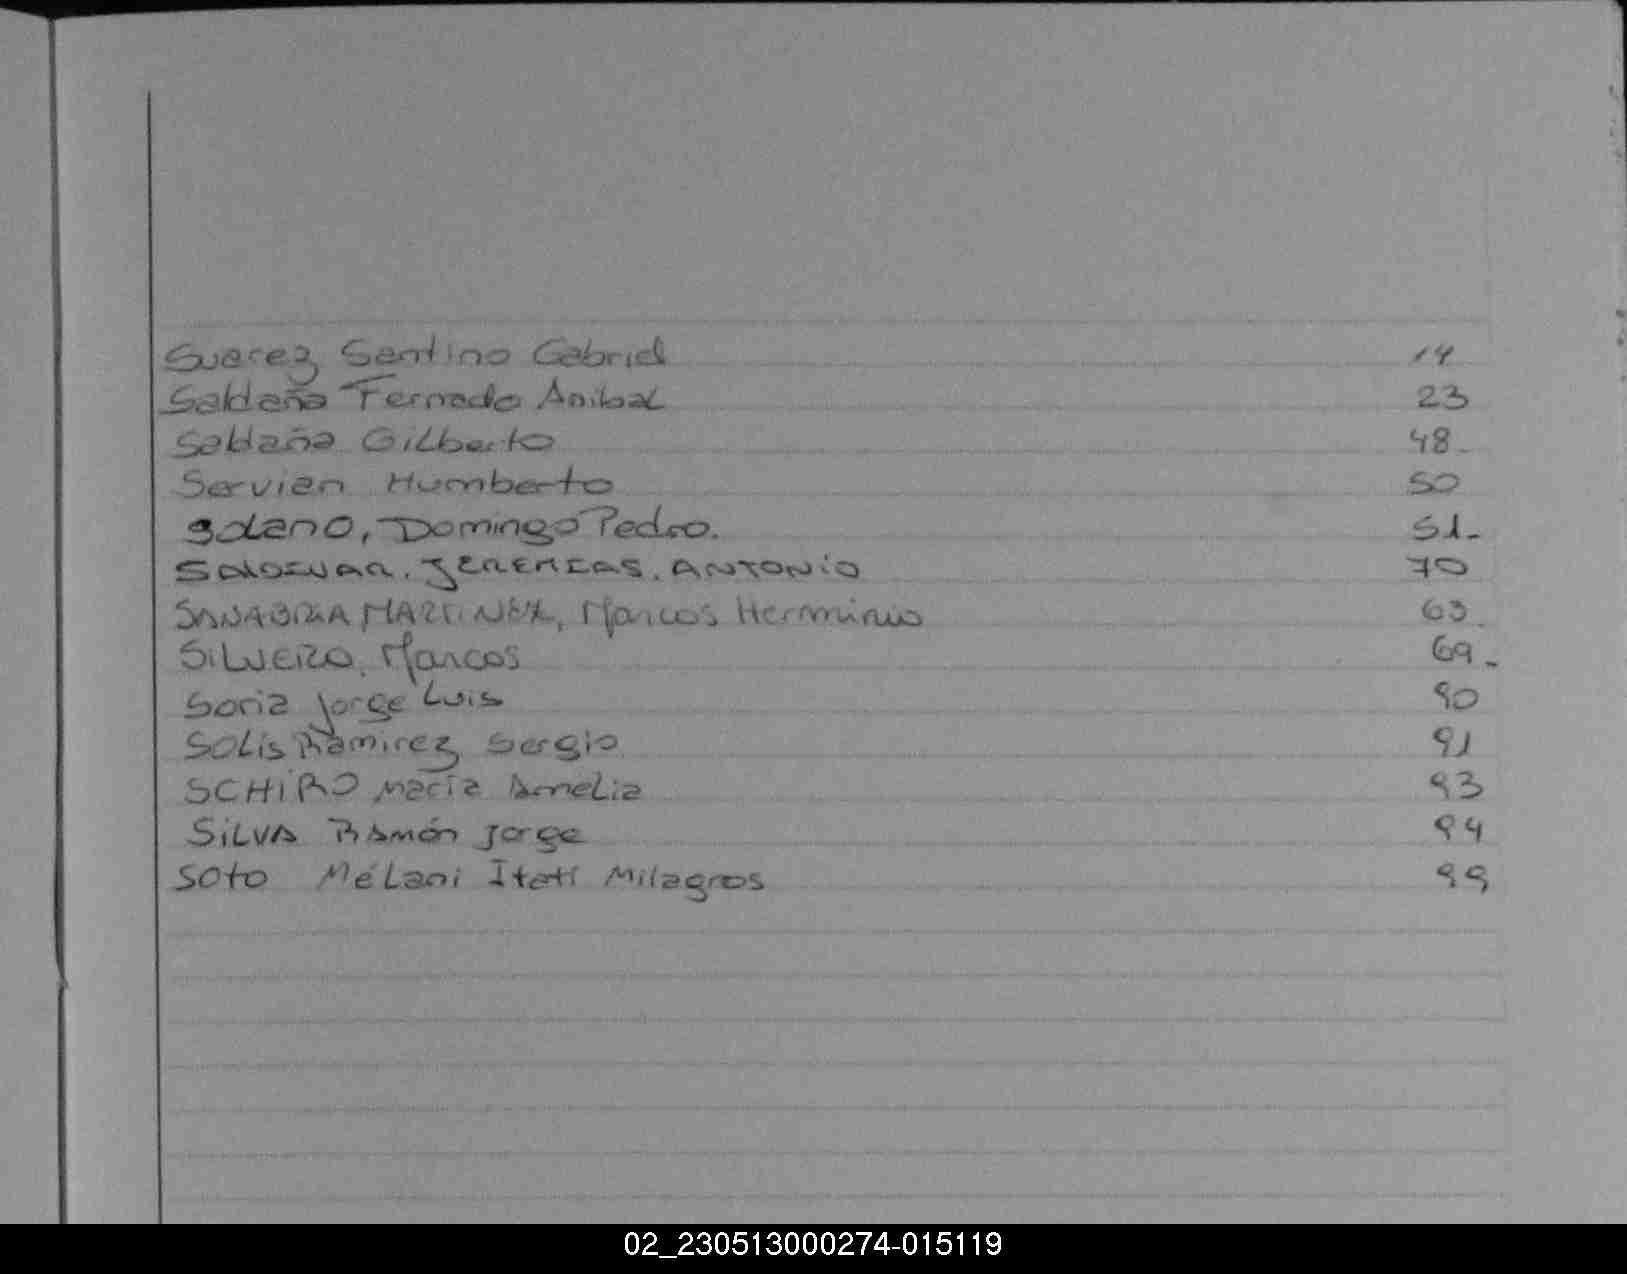 Suarez Santino Gabriel 14
Saldaña Fernado Anibal 23
Saldaña Gilberto 48.
Servian Humberto 50
Solano, Domingo Pedro. 51.
JEREMIAS. ANTONIO 70
SANABRIA MARTINEZ, Marcos Herminio 63.
SILVEIRO, Marcos 69.
Soria Jorge Luis 90
SOLIS Ramirez Sergio 91
SCHIRO María Amelia 93
SILVA Ramón Jorge 94
SOTO Mélani Itatí Milagros 99
02_230513000274-015119